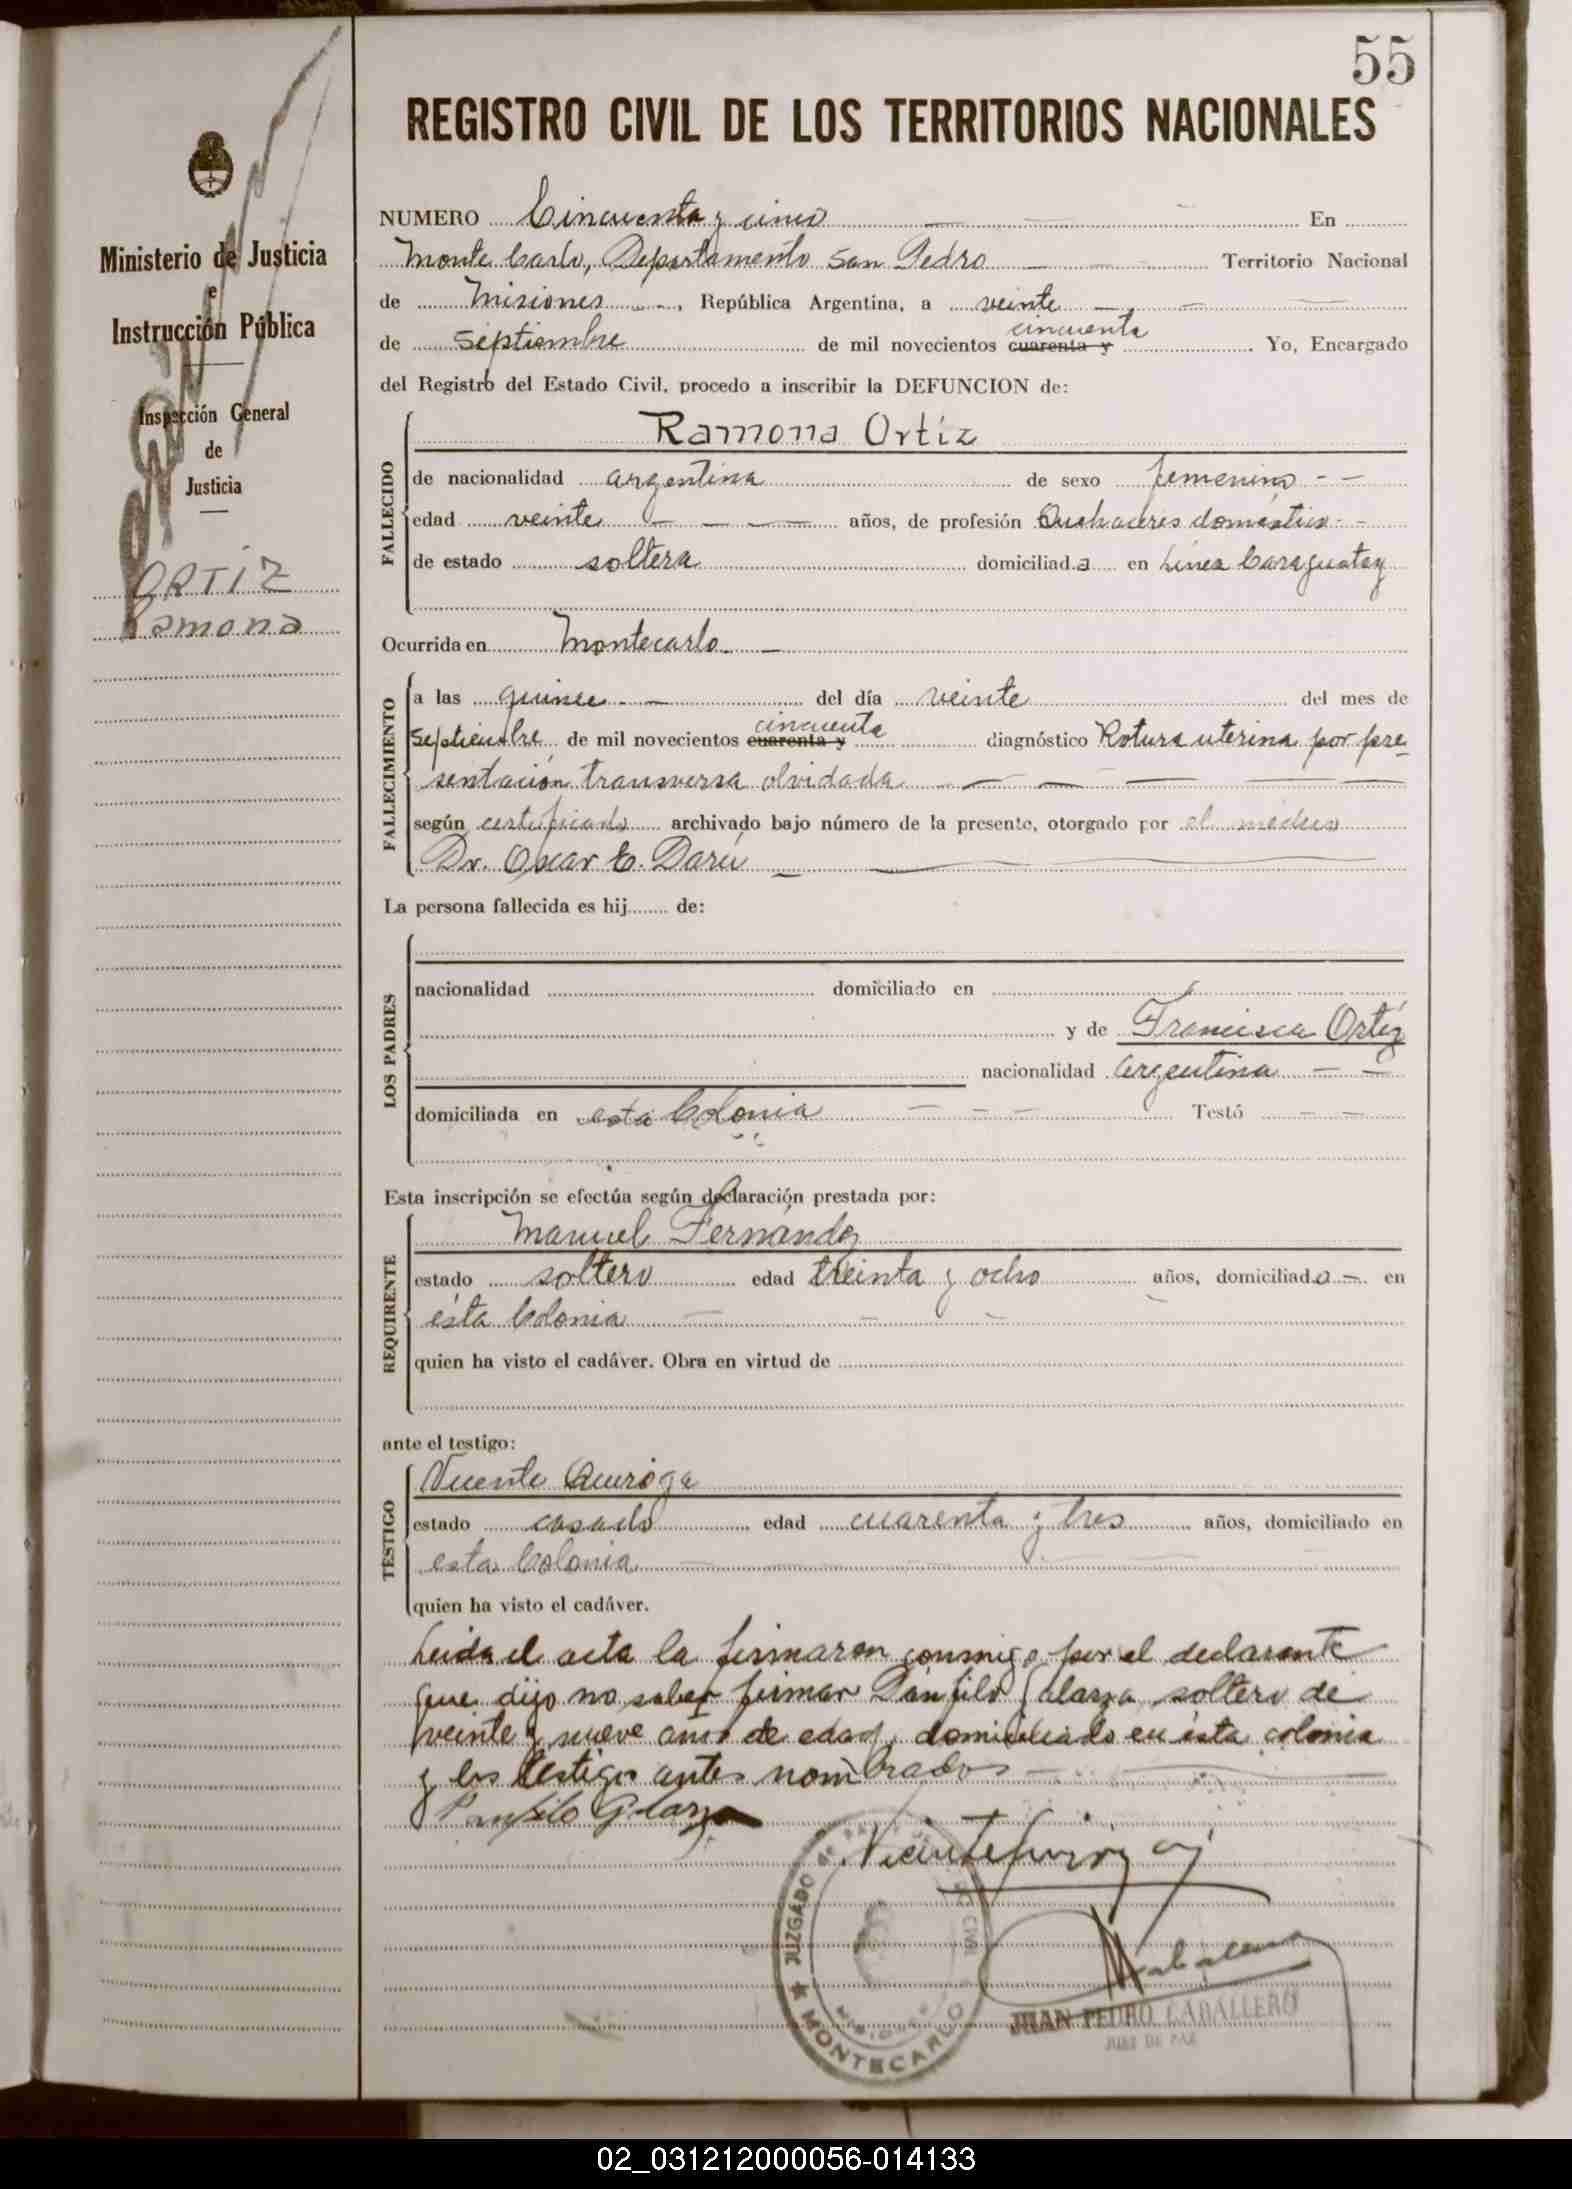 55
REGISTRO CIVIL DE LOS TERRITORIOS NACIONALES
Ministerio de Justicia
e
Instrucción Pública
Inspección General
de
Justicia
ORTIZ
Ramona
NUMERO Cincuenta y cinco En
Monte Carlo, Departamento San Pedro Territorio Nacional
de Misiones, República Argentina, a veinte
de septiembre de mil novecientos cuarenta y cincuenta Yo, Encargado
del Registro del Estado Civil, procedo a inscribir la DEFUNCION de:
FALLECIDO
Ramona Ortiz
de nacionalidad argentina de sexo femenino - -
edad veinte — — — años, de profesión Quehaceres domésticos -
de estado soltera domiciliada en Línea Caraguatay
Ocurrida en Montecarlo —
FALLECIMIENTO
a las quince - — del día veinte del mes de
septiembre de mil novecientos cuarenta y cincuenta diagnóstico Rotura uterina por pre-
sentación transversa olvidada — — — — —
según certificado archivado bajo número de la presente, otorgado por el médico
Dr. Oscar C. Darú —
La persona fallecida es hij de:
LOS PADRES
nacionalidad domiciliado en
y de Francisca Ortíz
nacionalidad argentina — —
domiciliada en esta Colonia — - - — Testó — —
Esta inscripción se efectúa según declaración prestada por:
REQUIRENTE
Manuel Fernández
estado soltero edad treinta y ocho años, domiciliado — en
ésta Colonia — — —
quien ha visto el cadáver. Obra en virtud de
ante el testigo:
TESTIGO
Vicente Quiroga
estado casado edad cuarenta y tres años, domiciliado en
esta Colonia —
quien ha visto el cadáver.
Leida el acta la firmaron conmigo por el declarante
que dijo no saber firmar Pánfilo Galarza soltero de
veinte y nueve años de edad, domiciliado en ésta colonia
y los testigo antes nombrados —
Panfilo Glarza
Vicente Quiroga
JUZGADO DE PAZ CIVIL
MISIONES
★ MONTECARLO
JUAN PEDRO CABALLERO
JUEZ DE PAZ
02_031212000056-014133